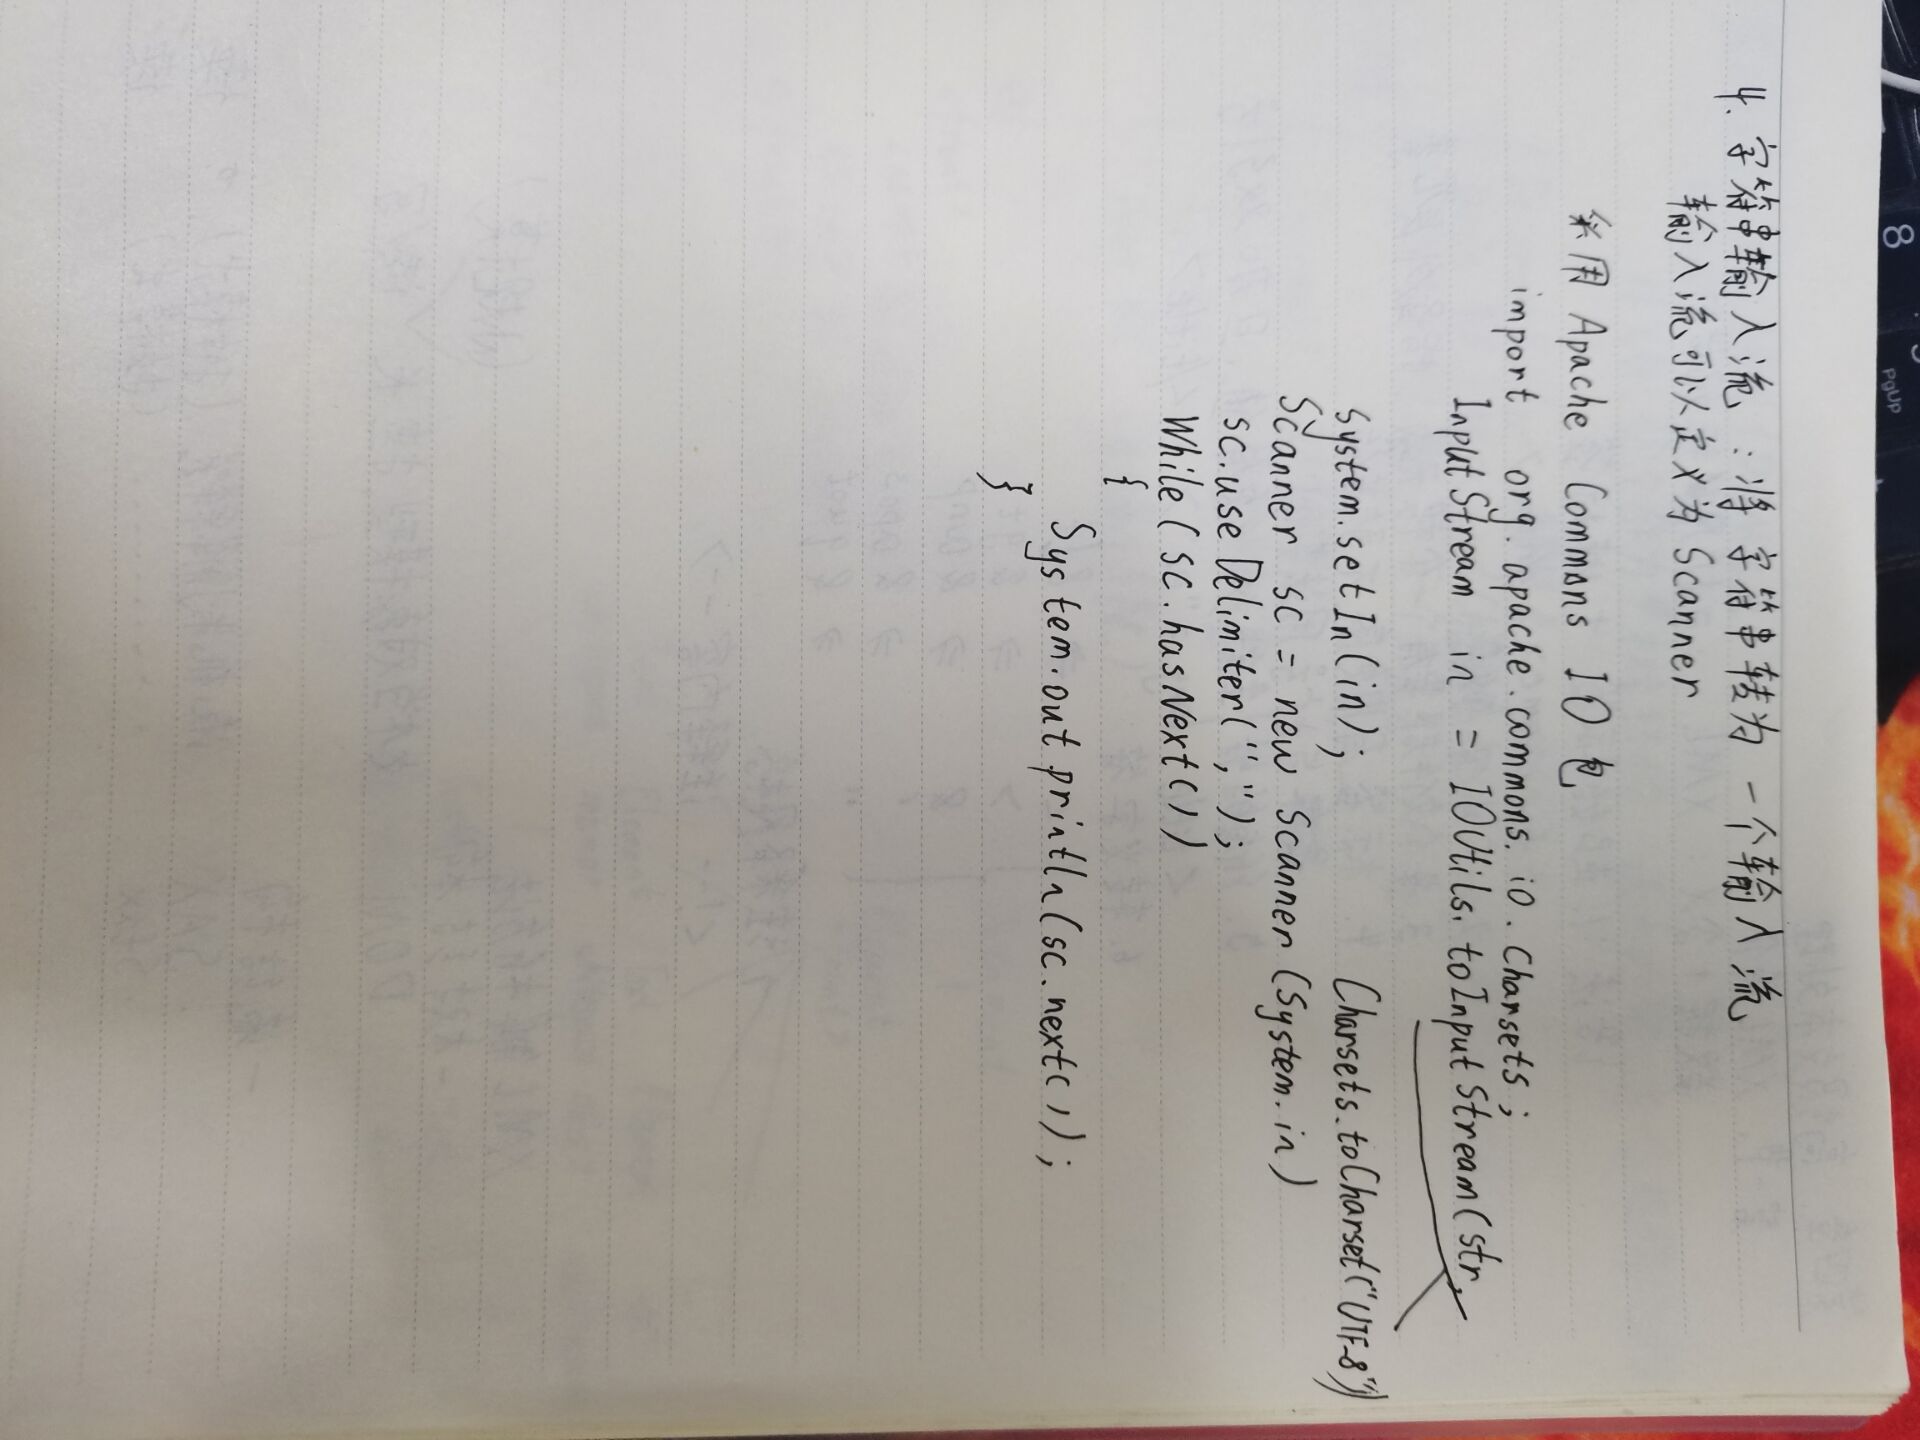 4. 字符串输入流：将字符串转为一个输入流
输入流可以定义为Scanner
采用 Apache Commons IO 包
import org.apache.commons.io.Charsets;
InputStream in = IOUtils.toInputStream(str,
Charsets.toCharset("UTF-8"))
System.setIn(in);
Scanner sc = new Scanner(System.in)
sc.useDelimiter(",");
While(sc.hasNext())
{
System.out println(sc.next());
}
8
PgUp